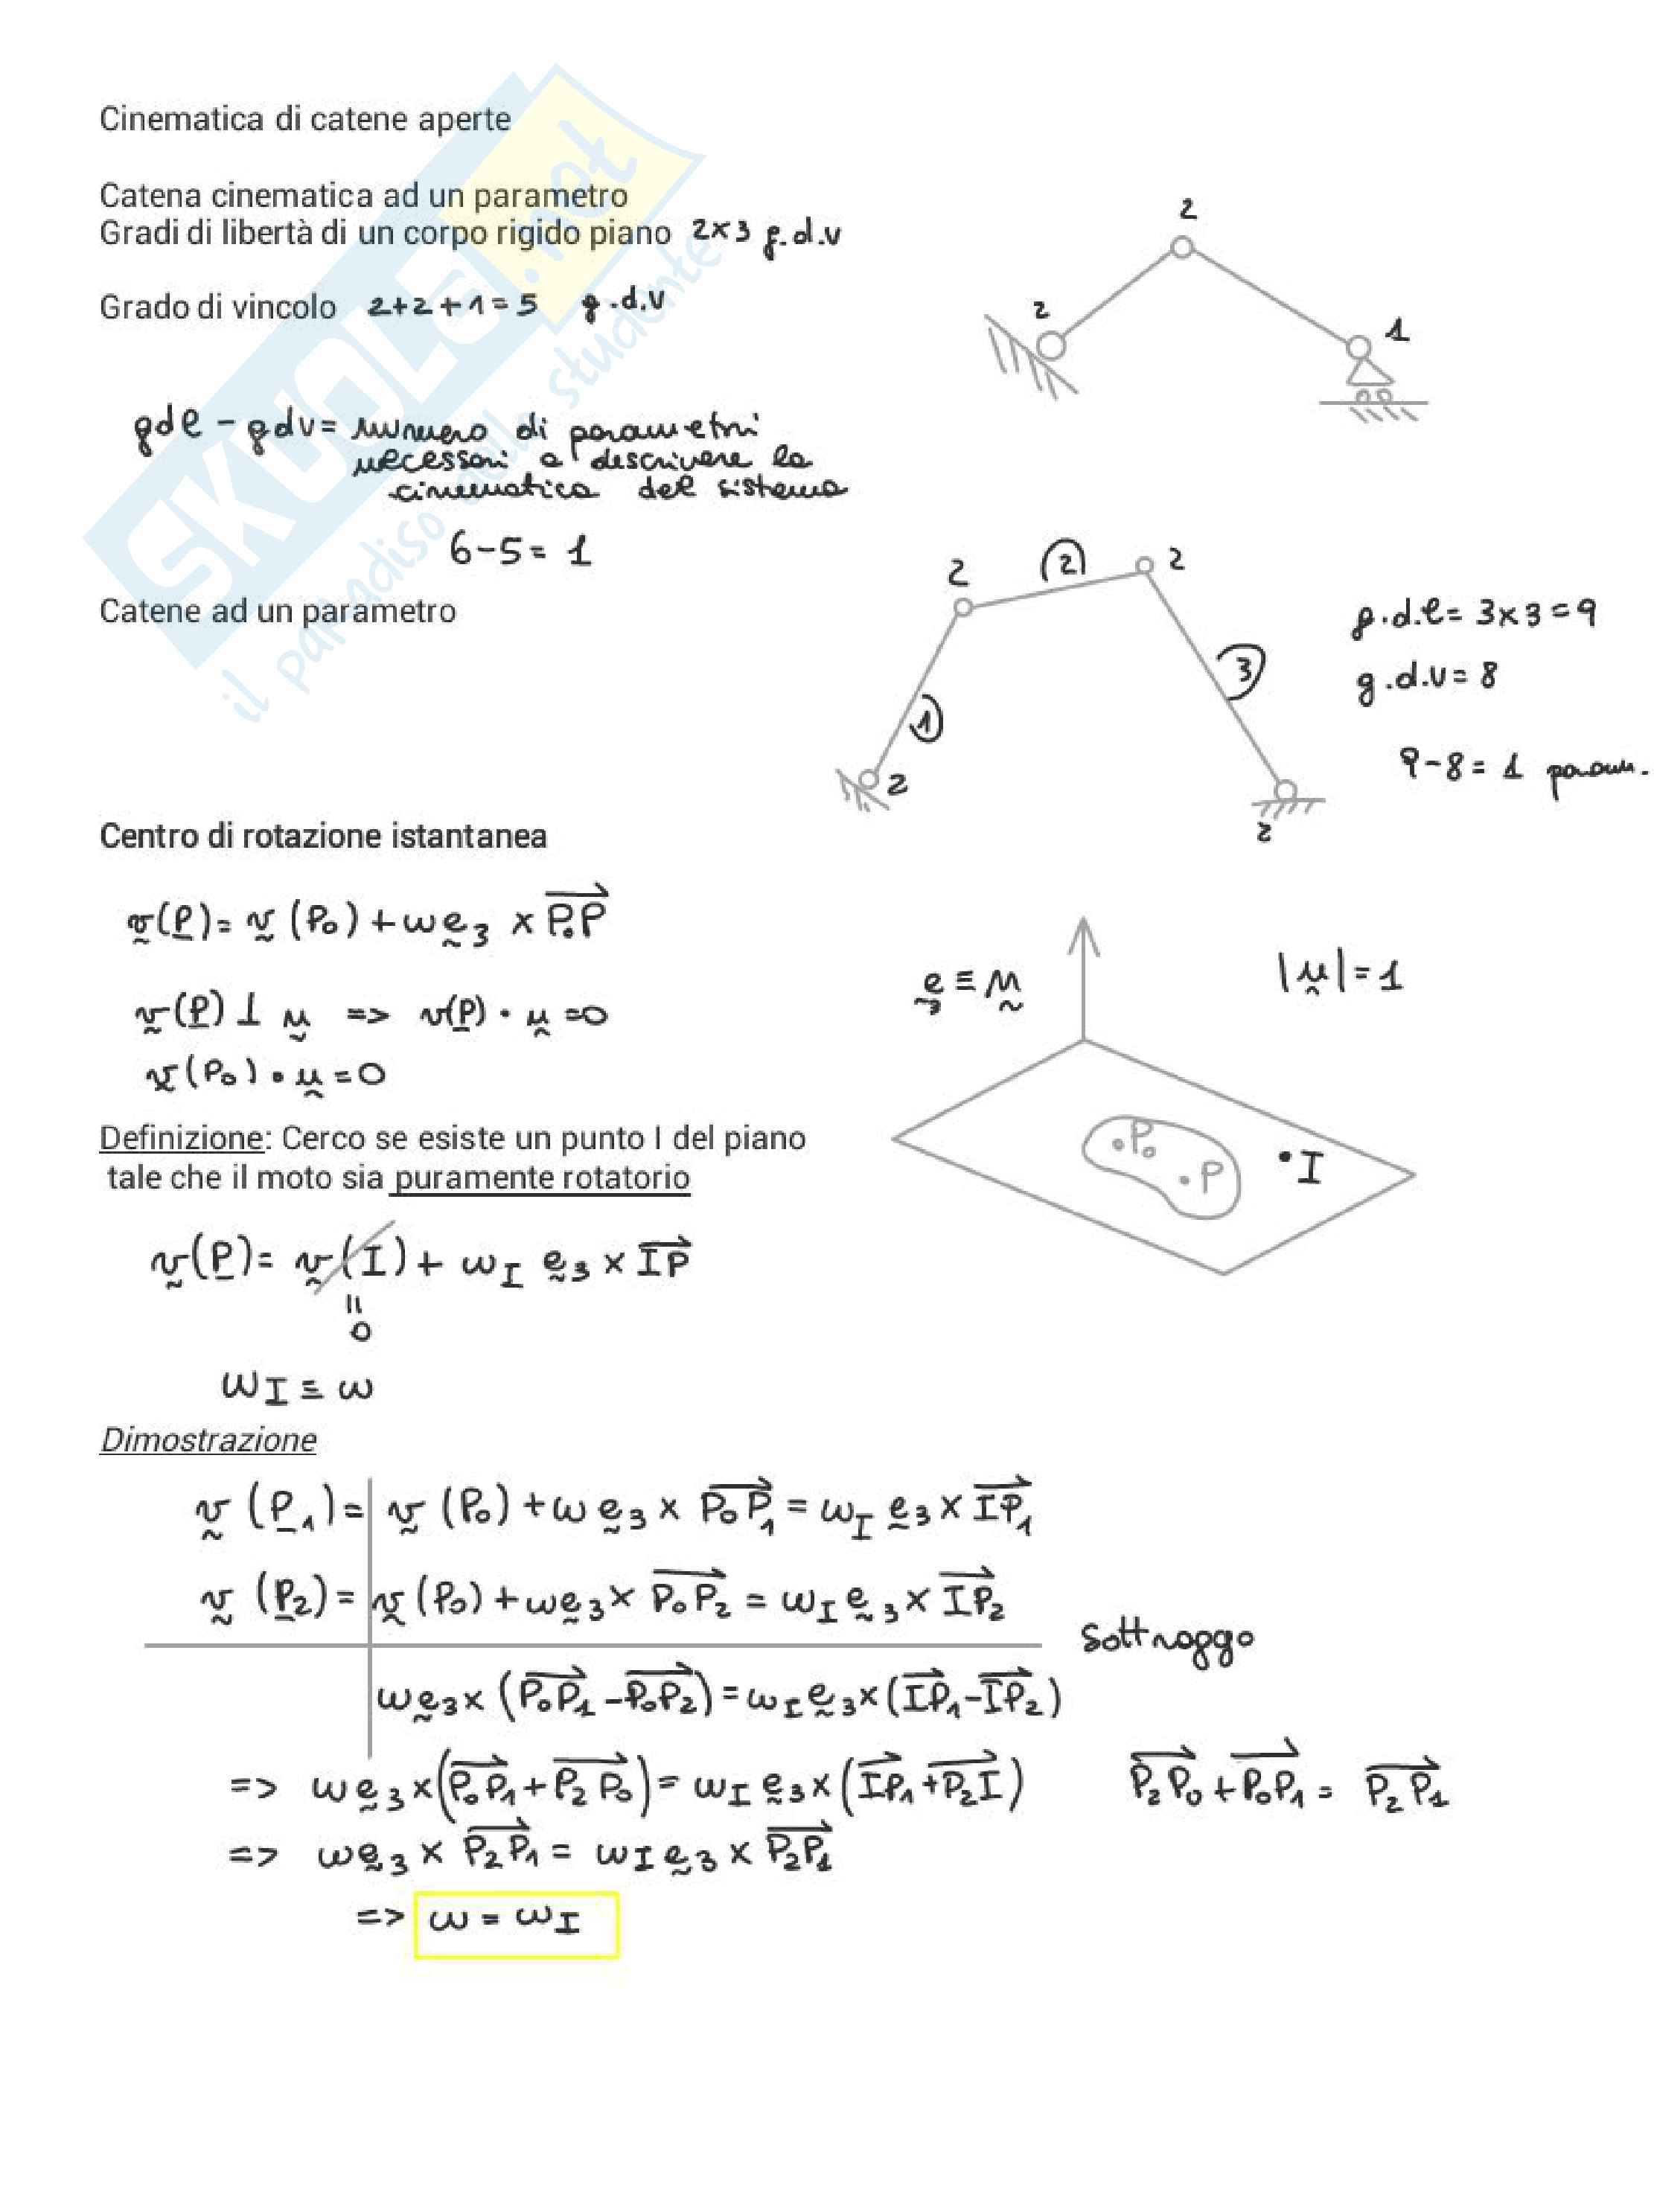 Cinematica di catene aperte
Catena cinematica ad un parametro
Gradi di libertà di un corpo rigido piano 2x3 g.d.v
Grado di vincolo 2+2+1=5 g.d.v
2
2
1
gdl - gdv= numero di parametri
necessari a descrivere la
cinematica del sistema
6-5= 1
Catene ad un parametro
2
2
2
1
3
2
2
g.d.l= 3x3=9
g.d.v= 8
9-8= 1 param.
Centro di rotazione istantanea
v(P)= v(P₀)+ωe₃ x P₀P
v(P)⊥ u => v(P)·u=0
v(P₀)·u=0
e₃ ≡ u
|u|=1
P₀
P
I
Definizione: Cerco se esiste un punto I del piano
tale che il moto sia puramente rotatorio
v(P)= v(I)+ ω_I e₃ x IP
=
0
ω_I ≡ ω
Dimostrazione
v(P₁)= v(P₀)+ωe₃ x P₀P₁ = ω_I e₃ x IP₁
v(P₂)= v(P₀)+ωe₃ x P₀P₂ = ω_I e₃ x IP₂
Sottraggo
ωe₃x(P₀P₁-P₀P₂)=ω_I e₃x(IP₁-IP₂)
=> ωe₃x(P₀P₁+P₂P₀)= ω_I e₃x(IP₁+P₂I) P₂P₀+P₀P₁= P₂P₁
=> ωe₃ x P₂P₁= ω_I e₃ x P₂P₁
=> ω = ω_I
SKUOLA.net
il paradiso dello studente